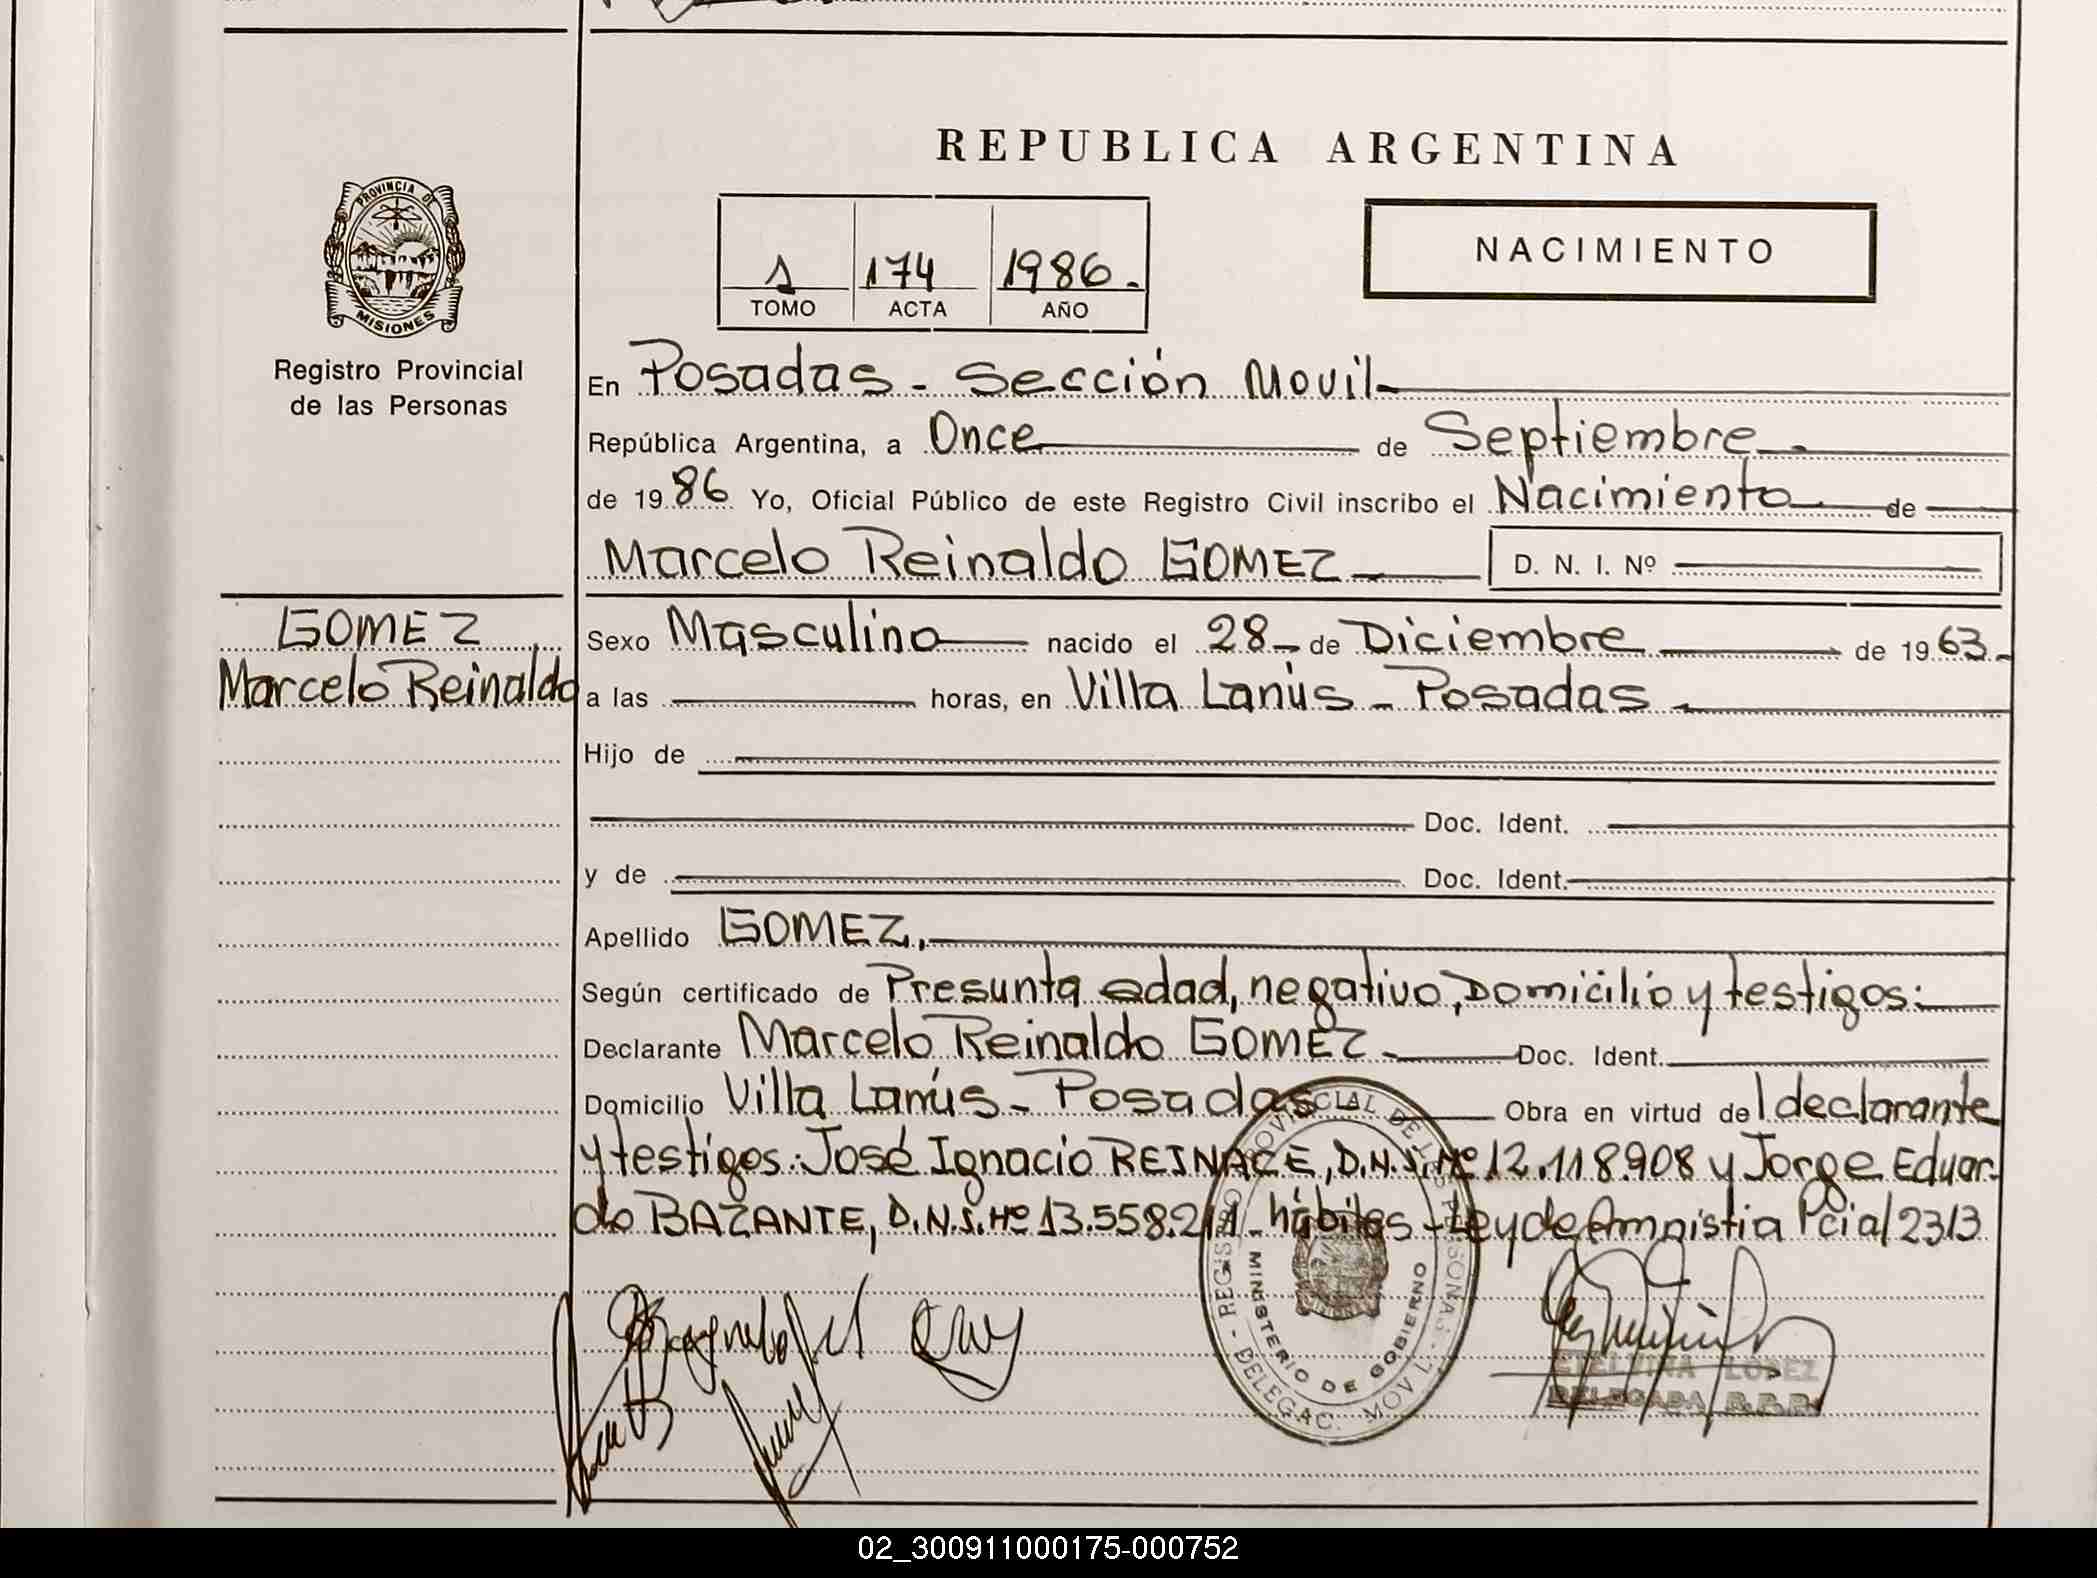 REPUBLICA ARGENTINA
PROVINCIA DE
MISIONES
Registro Provincial
de las Personas
1 174 1986.
TOMO ACTA AÑO
NACIMIENTO
En Posadas - Sección Movil
República Argentina, a Once de Septiembre
de 1986 Yo, Oficial Público de este Registro Civil inscribo el Nacimiento de
Marcelo Reinaldo GOMEZ D. N. I. Nº
GOMEZ
Marcelo Reinaldo
Sexo Masculino nacido el 28 de Diciembre de 1963.
a las horas, en Villa Lanús - Posadas
Hijo de
Doc. Ident.
y de Doc. Ident.
Apellido GOMEZ,
Según certificado de Presunta edad, negativo, Domicilio y testigos:
Declarante Marcelo Reinaldo GOMEZ Doc. Ident.
Domicilio Villa Lanús - Posadas Obra en virtud del declarante
y testigos: José Ignacio REINACE, D.N.I. Nº 12.118.908 y Jorge Eduar-
do BAZANTE, D.N.I. Nº 13.558.211 - hábiles - Ley de Amnistia Pcial 2313
MINISTERIO DE GOBIERNO
DELEGAC. MOVIL
LOPEZ
DELEGADA R.P.P.
02_300911000175-000752